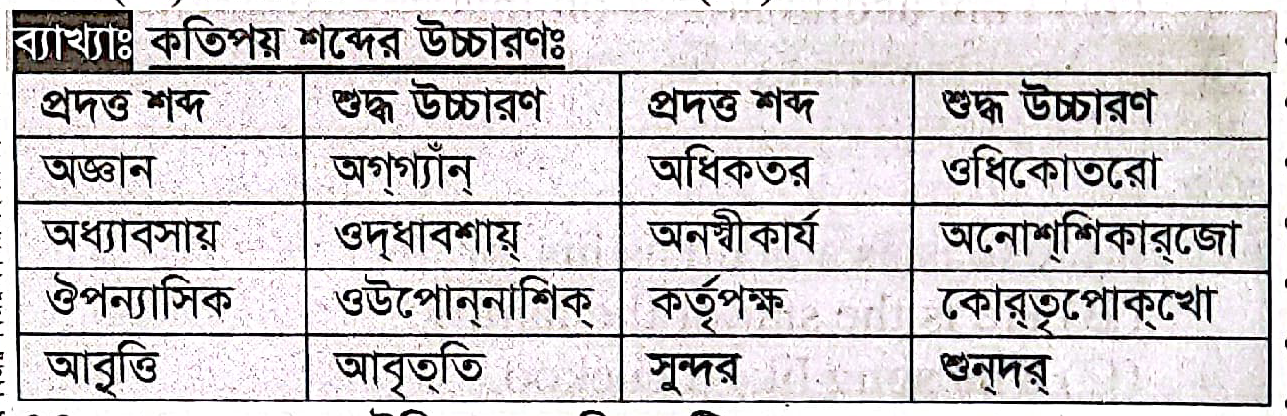 ব্যাখ্যাঃ কতিপয় শব্দের উচ্চারণঃ
প্রদত্ত শব্দ শুদ্ধ উচ্চারণ প্রদত্ত শব্দ শুদ্ধ উচ্চারণ
অজ্ঞান অগ্‌গ্যাঁন্ অধিকতর ওধিকোতরো
অধ্যাবসায় ওদ্‌ধাবশায়্ অনস্বীকার্য অনোশ্‌শিকার্‌জো
ঔপন্যাসিক ওউপোন্‌নাশিক্ কর্তৃপক্ষ কোর্‌তৃপোক্‌খো
আবৃত্তি আবৃত্‌তি সুন্দর শুন্‌দর্